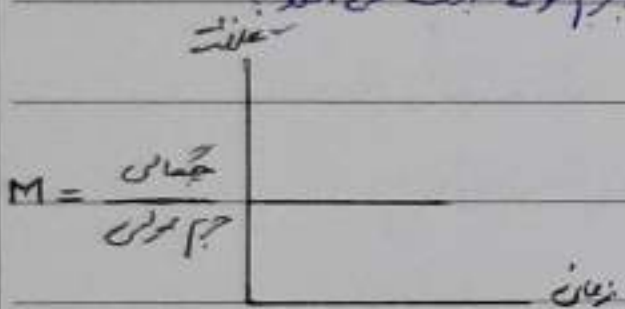 غلظت
M = چگالی / جرم مولی
زمان